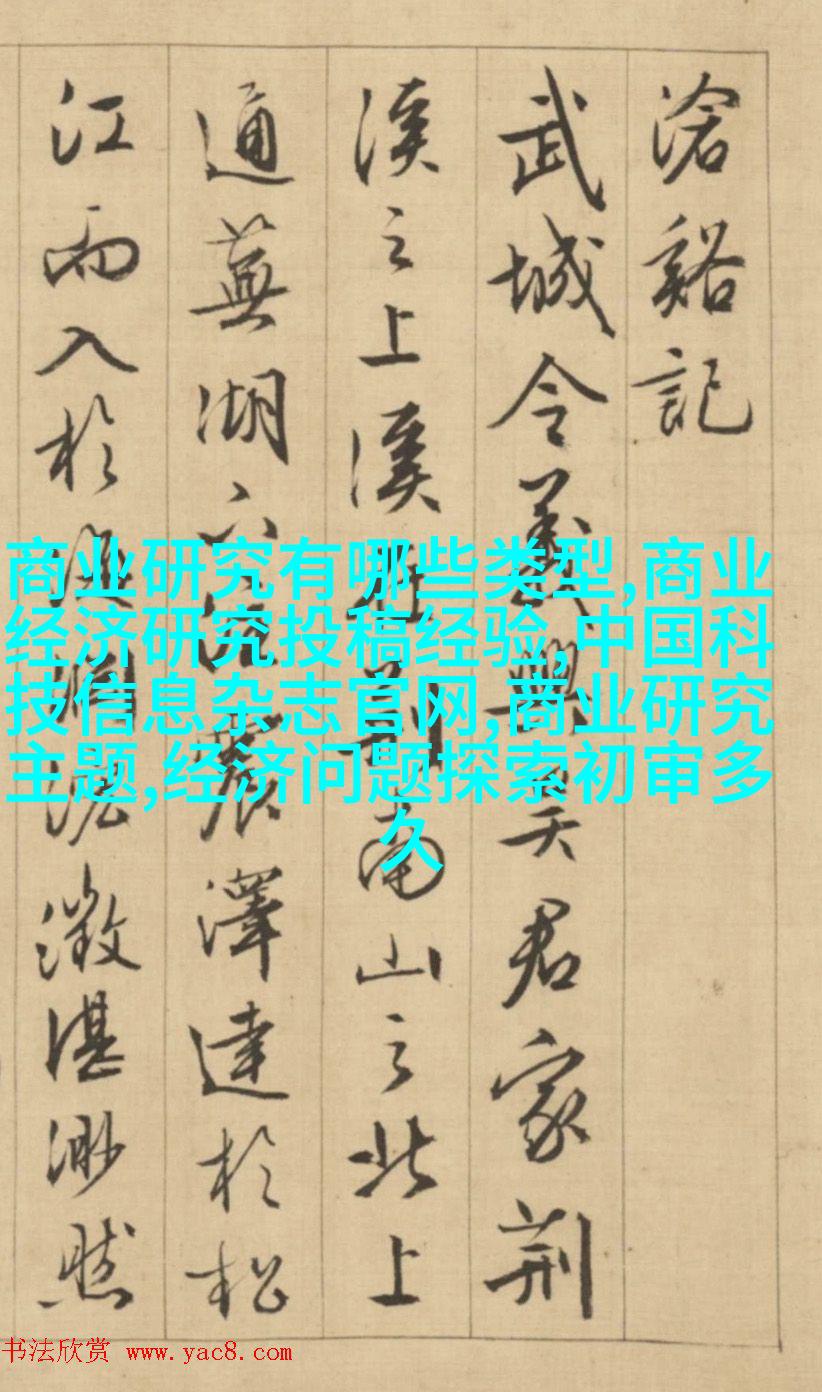 滄谿記
武城令義興吳君家荆
溪之上溪在荆南山之北上
通蕪湖下流震澤達於松
江而入於淵泓澂湛渺然
商业研究有哪些类型,商业
经济研究投稿经验,中国科
技信息杂志官网,商业研究
主题,经济问题探索初审多
久
书法欣赏 www.yac8.com